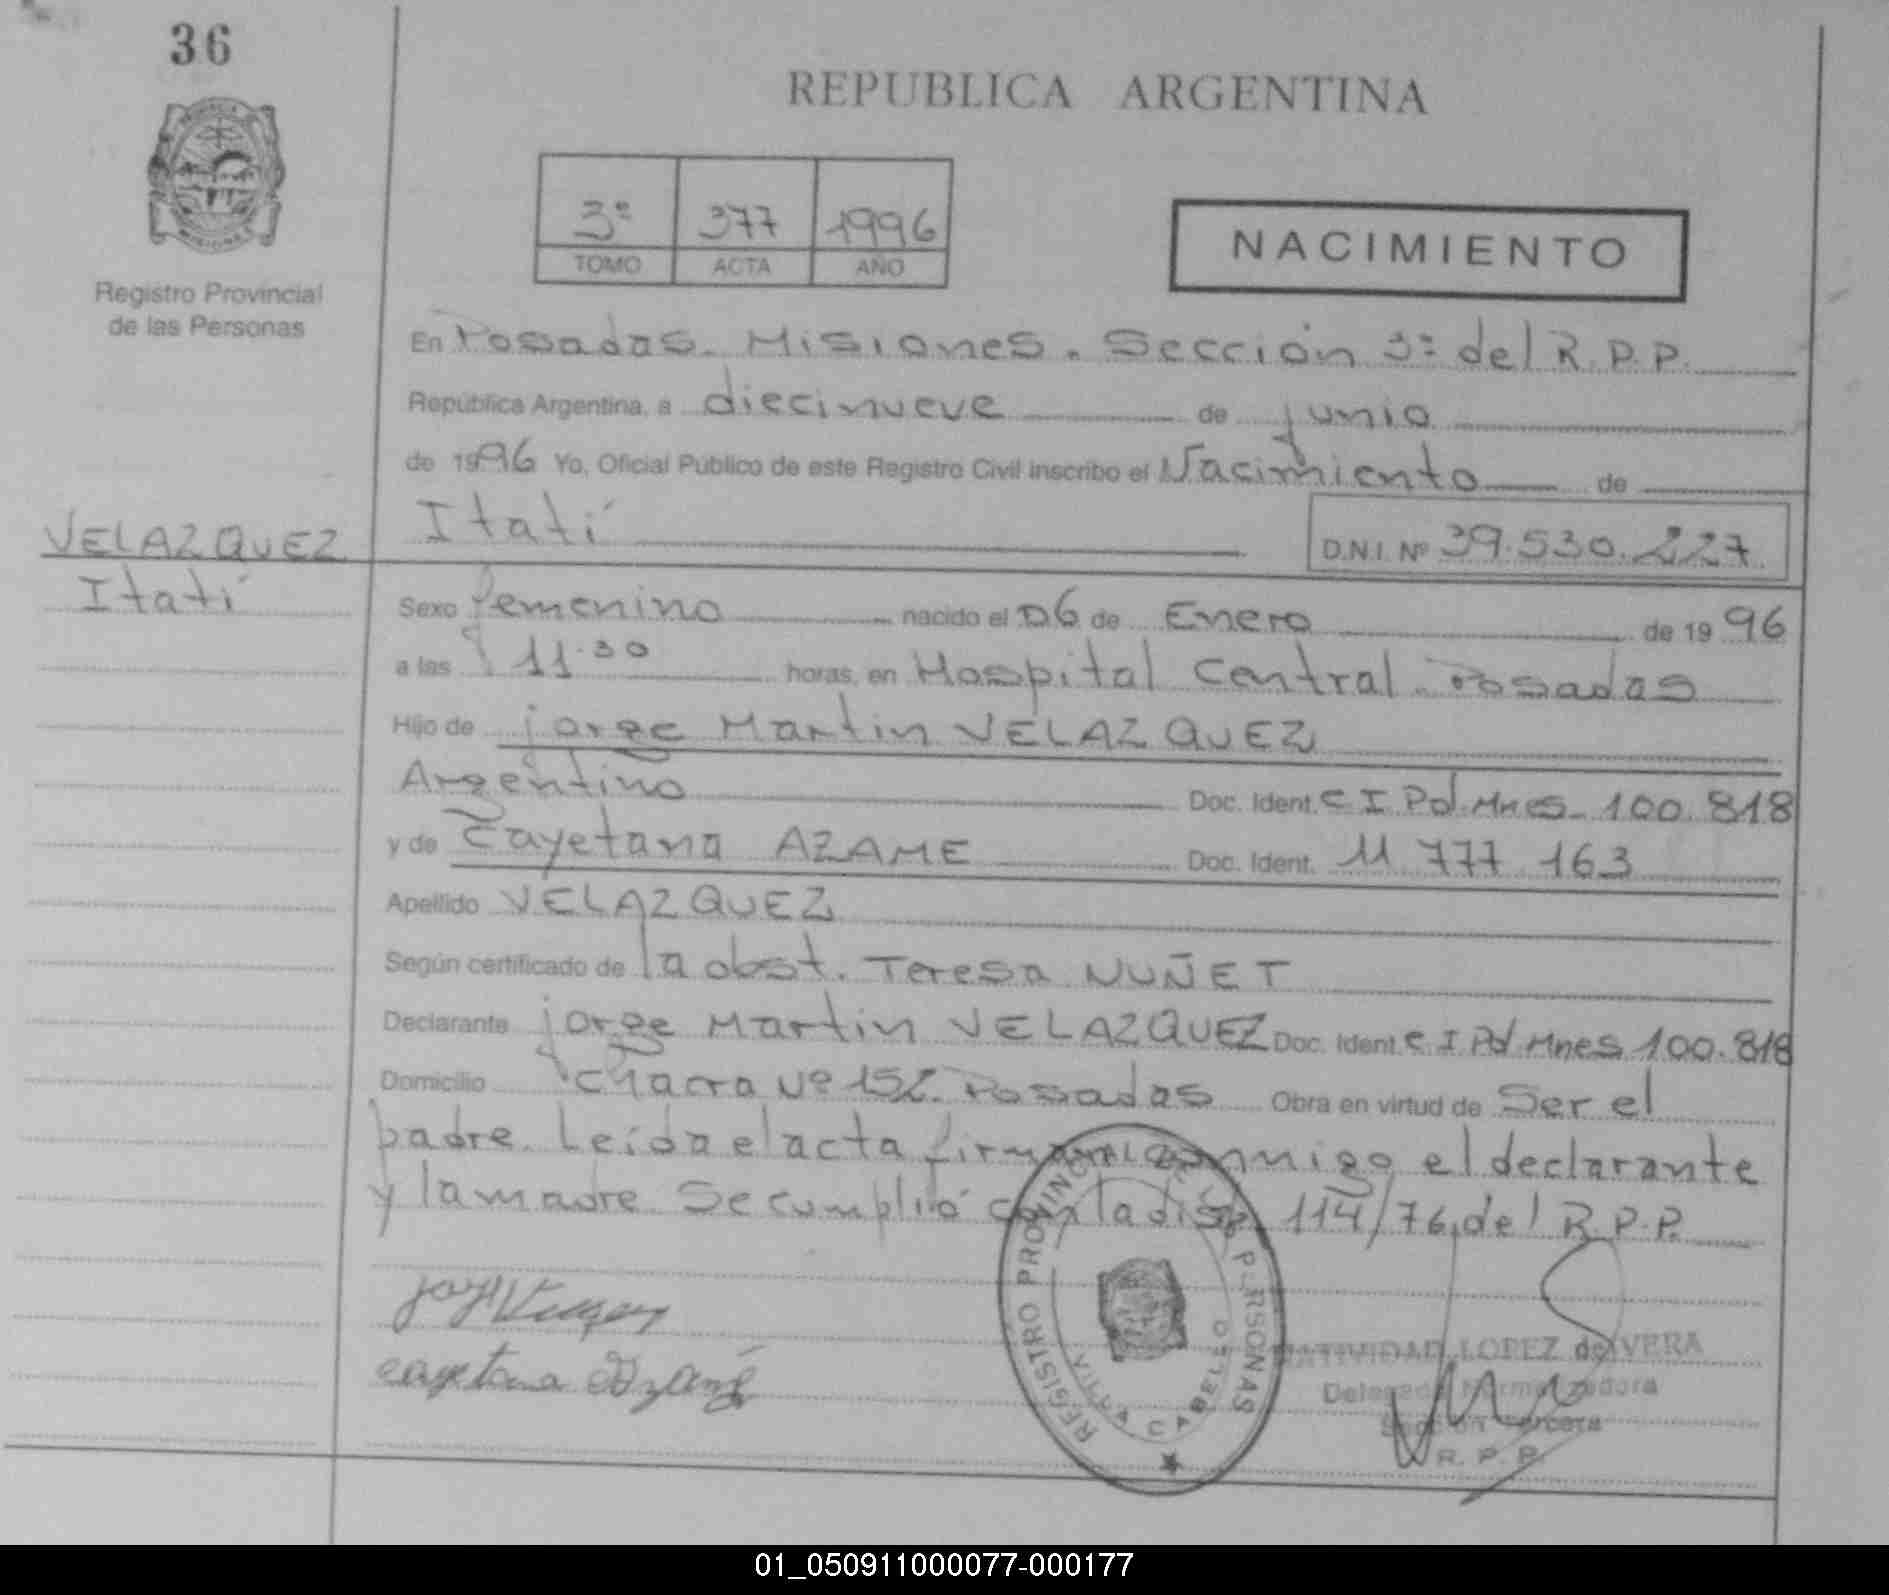 36
REPUBLICA ARGENTINA
3º 377 1996
TOMO ACTA AÑO
NACIMIENTO
Registro Provincial
de las Personas
En Posadas. Misiones. Sección 3ª del R.P.P.
República Argentina, a diecinueve de junio
de 1996 Yo, Oficial Público de este Registro Civil inscribo el Nacimiento de
Itatí D.N.I. Nº 39.530.227
VELAZQUEZ
Itatí
Sexo femenino nacido el 06 de Enero de 1996
a las 11.30 horas, en Hospital Central. Posadas
Hijo de jorge Martin VELAZQUEZ
Argentino Doc. Ident. C I Pol. Mnes. 100.818
y de Cayetana AZAME Doc. Ident. 11 777 163
Apellido VELAZQUEZ
Según certificado de la obst. Teresa NUÑET
Declarante jorge Martin VELAZQUEZ Doc. Ident. C I Pol Mnes 100.818
Domicilio Chacra Nº 152. Posadas Obra en virtud de Ser el
padre. Leída el acta firman conmigo el declarante
y la madre. Se cumplió con la disp. 114/76 del R.P.P.
cayetana
REGISTRO PROVINCIAL DE LAS PERSONAS
VILLA CABELLO
NATIVIDAD LOPEZ de VERA
Delegada Normalizadora
Sección Tercera
R. P. P.
01_050911000077-000177